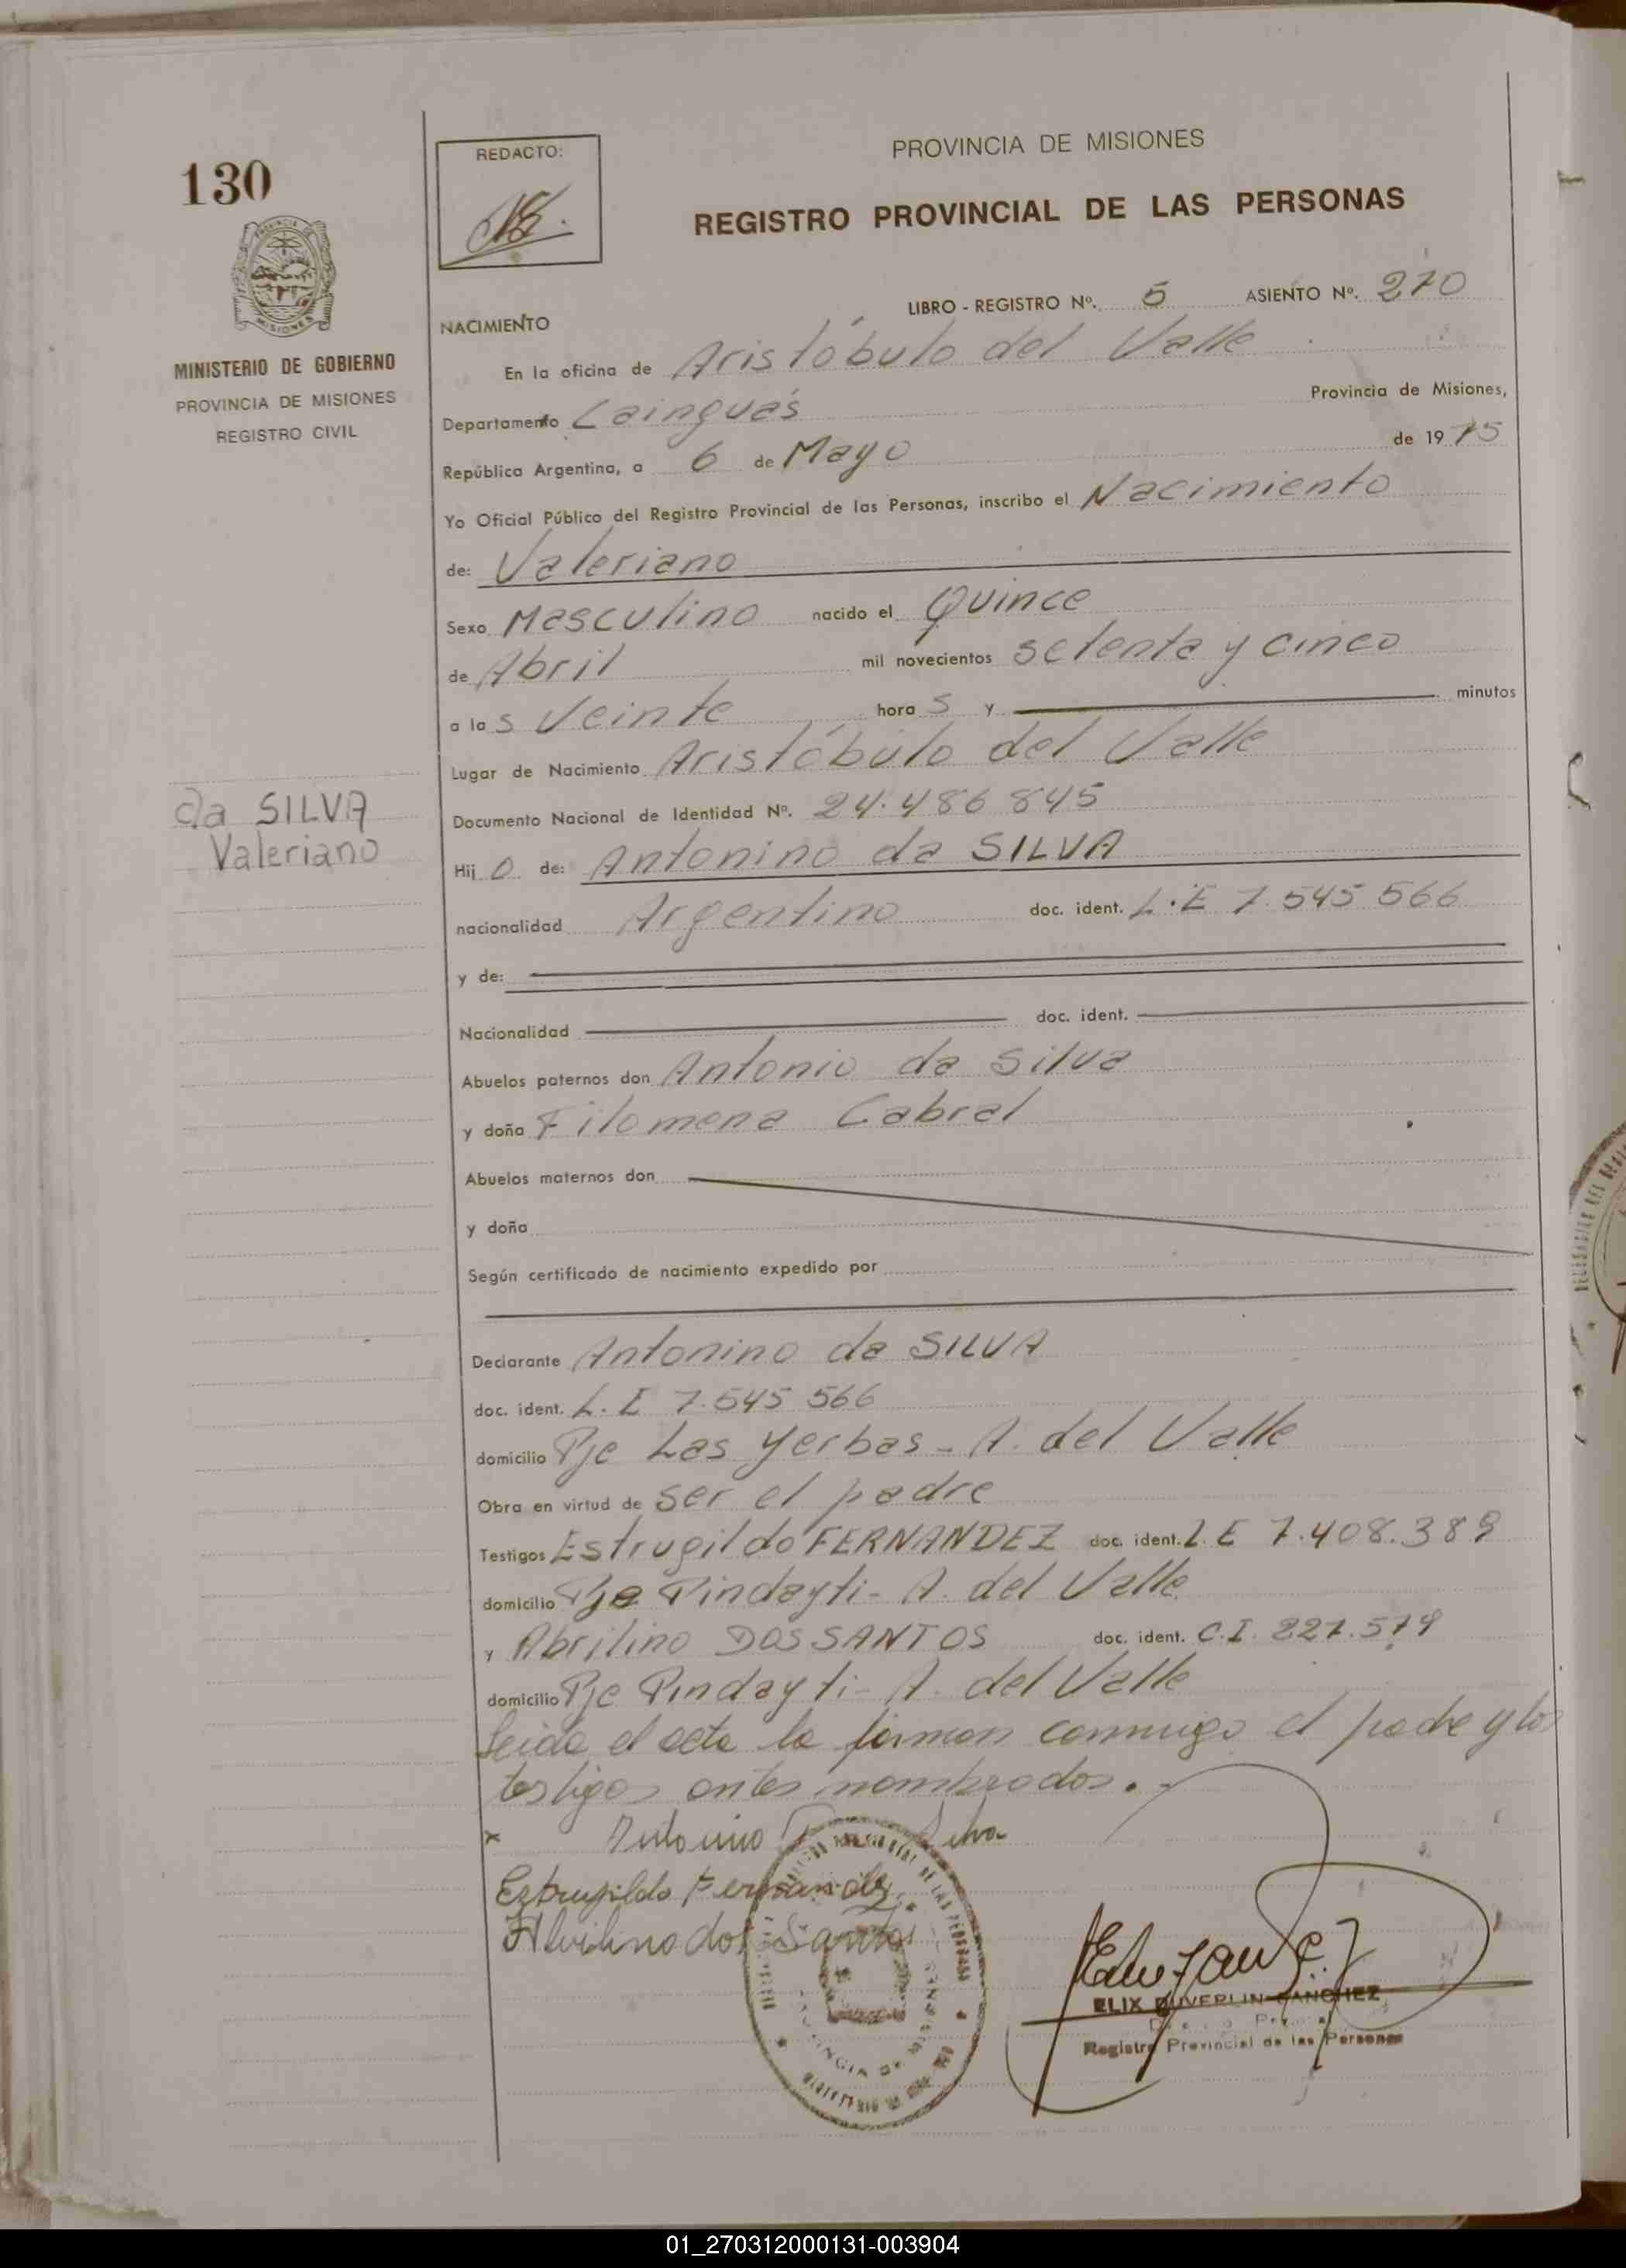 130
REDACTO:
PROVINCIA DE MISIONES
REGISTRO PROVINCIAL DE LAS PERSONAS
MINISTERIO DE GOBIERNO
PROVINCIA DE MISIONES
REGISTRO CIVIL
LIBRO - REGISTRO Nº. 5 ASIENTO Nº. 270
NACIMIENTO
En la oficina de Aristóbulo del Valle
Departamento Cainguás Provincia de Misiones,
República Argentina, a 6 de Mayo de 1975
Yo Oficial Público del Registro Provincial de las Personas, inscribo el Nacimiento
de: Valeriano
Sexo Masculino nacido el Quince
de Abril mil novecientos setenta y cinco
a las Veinte horas y minutos
Lugar de Nacimiento Aristóbulo del Valle
da SILVA
Valeriano
Documento Nacional de Identidad Nº. 24.486 845
Hijo de: Antonino da SILVA
nacionalidad Argentino doc. ident. L.E 7.545 566
y de:
Nacionalidad doc. ident.
Abuelos paternos don Antonio da Silva
y doña Filomena Cabral
Abuelos maternos don
y doña
Según certificado de nacimiento expedido por
Declarante Antonino da SILVA
doc. ident. L.E 7.545 566
domicilio Pje Las Yerbas - A. del Valle
Obra en virtud de ser el padre
Testigos Estrugildo FERNANDEZ doc. ident. L.E 7.408.389
domicilio Pje Pindayti - A. del Valle
y Abrilino DOS SANTOS doc. ident. C.I. 227.579
domicilio Pje Pindayti - A. del Valle
Leida el acta la firman conmigo el padre y los
testigos antes nombrados.
x Antonino Silva
Estrugildo Fernandez
Alvilino dos Santos
ELIX DUVERLIN SANCHEZ
Registro Provincial de las Personas
01_270312000131-003904